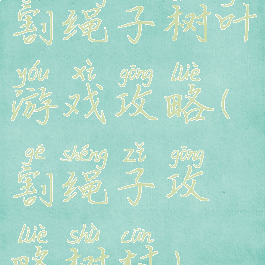 割绳子树叶
yóu xì gōng lüè
游戏攻略(
gē shéng zǐ gōng
割绳子攻
lüè shù cūn
略树村)